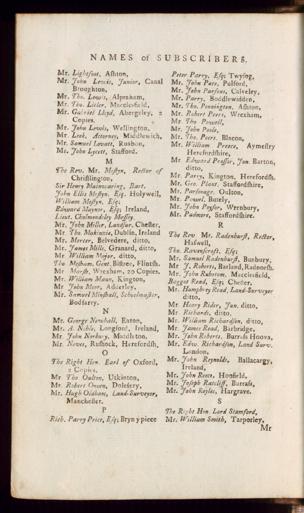 NAMES OF SUBSCRIBERS.
Mr. Lightfoot, Ashton,
Mr. John Lewis, Junior, Canal
Broughton,
Mr. Tho. Lewis, Alpraham,
Mr. Tho. Macclesfield,
Mr. Gabriel Lloyd, Abergeley, 2
Copies,
Mr. John Lewis, Wellington,
Mr. Leek, Attorney, Middlewich,
Mr. Samuel Lovatt, Rusbon,
Mr. John Lycett, Stafford.
M
The Rev. Mr. Mostyn, Rector of
Christlington,
Sir Henry Mainwaring, Bart.
John Ellis Mostyn, Esq. Holywell,
William Mostyn, Esq;
Edward Maynor, Esq; Ireland,
Lieut. Cholmondeley Massey,
Mr. John Miller, Landsur, Chester,
Mr. Tho. Dublin, Ireland
Mr. Mercer, Belvedere, ditto,
Mr. James Mills, Granard, ditto,
Mr. William Major, ditto,
Tho Gent. Flintsh.
Mr. Marsh, Wrexham, 20 Copies,
Mr. William Kington,
Mr. John Moor, Adderley,
Mr. Samuel Minshall, Schoolmaster,
Bodfarry.
N
Mr. George Newhall, Eaton,
Mr. A. Noble, Longford, Ireland,
Mr. John Norbury, Middleton,
Mr. Noves, Rustock, Herefordsh.
O
The Right Hon. Earl of Oxford,
2 Copies,
Mr. Tho Oulton, Utkinton,
Mr. Robert Owen,
Mr. Hugh Oldham, Land-Surveyor,
Manchester.
P
Rich. Parry Price, Esq; Bryn y piece
Peter Parry, Esq; Twysog,
Mr. John Pate, Pulford,
Mr. John Parsons, Calveley,
Mr. Parry, Boddlewidden,
Mr. Tho. Pennington, Ashton,
Mr. Robert Peers, Wrexham,
Mr. Tho Powell,
Mr. John Poole,
Mr. Tho. Peers, Blacon,
Mr. William Preece, Aymestry
Herefordshire,
Mr. Edward Prosser, Jun. Barton,
ditto,
Mr. Parry, Kington, Herefordsh.
Mr. Geo. Plant, Staffordshire,
Mr. Parsonage, Oulton,
Mr. Powel, Bately,
Mr. John Wrenbury,
Mr. Padmore, Staffordshire.
R
The Rev Mr. Radenhurst, Rector,
Haswell,
Tho. Ravenscroft, Esq;
Mr. Samuel Radenhurst, Bunbury,
Mr. J. Roberts, Barland, Radnorsh.
Mr. John Macclesfield,
Roggat Read, Esq; Chester,
Mr. Humphrey Read, Land-Surveyor
ditto,
Mr. Henry Rider, Jun. ditto,
Mr. Richards, ditto,
Mr. William Richardson, ditto,
Mr. James Read, Barbridge,
Mr. John Roberts,
Mr. Edw. Richardson, Land Surv.
London,
Mr. John Reynolds, Ballacargy,
Ireland,
Mr. John Reece, Honfield,
Mr. Joseph Ratcliff,
Mr. John Royles, Hargrave.
S
The Right Hon. Lord Stamford,
Mr. William Smith, Tarporley,
Mr